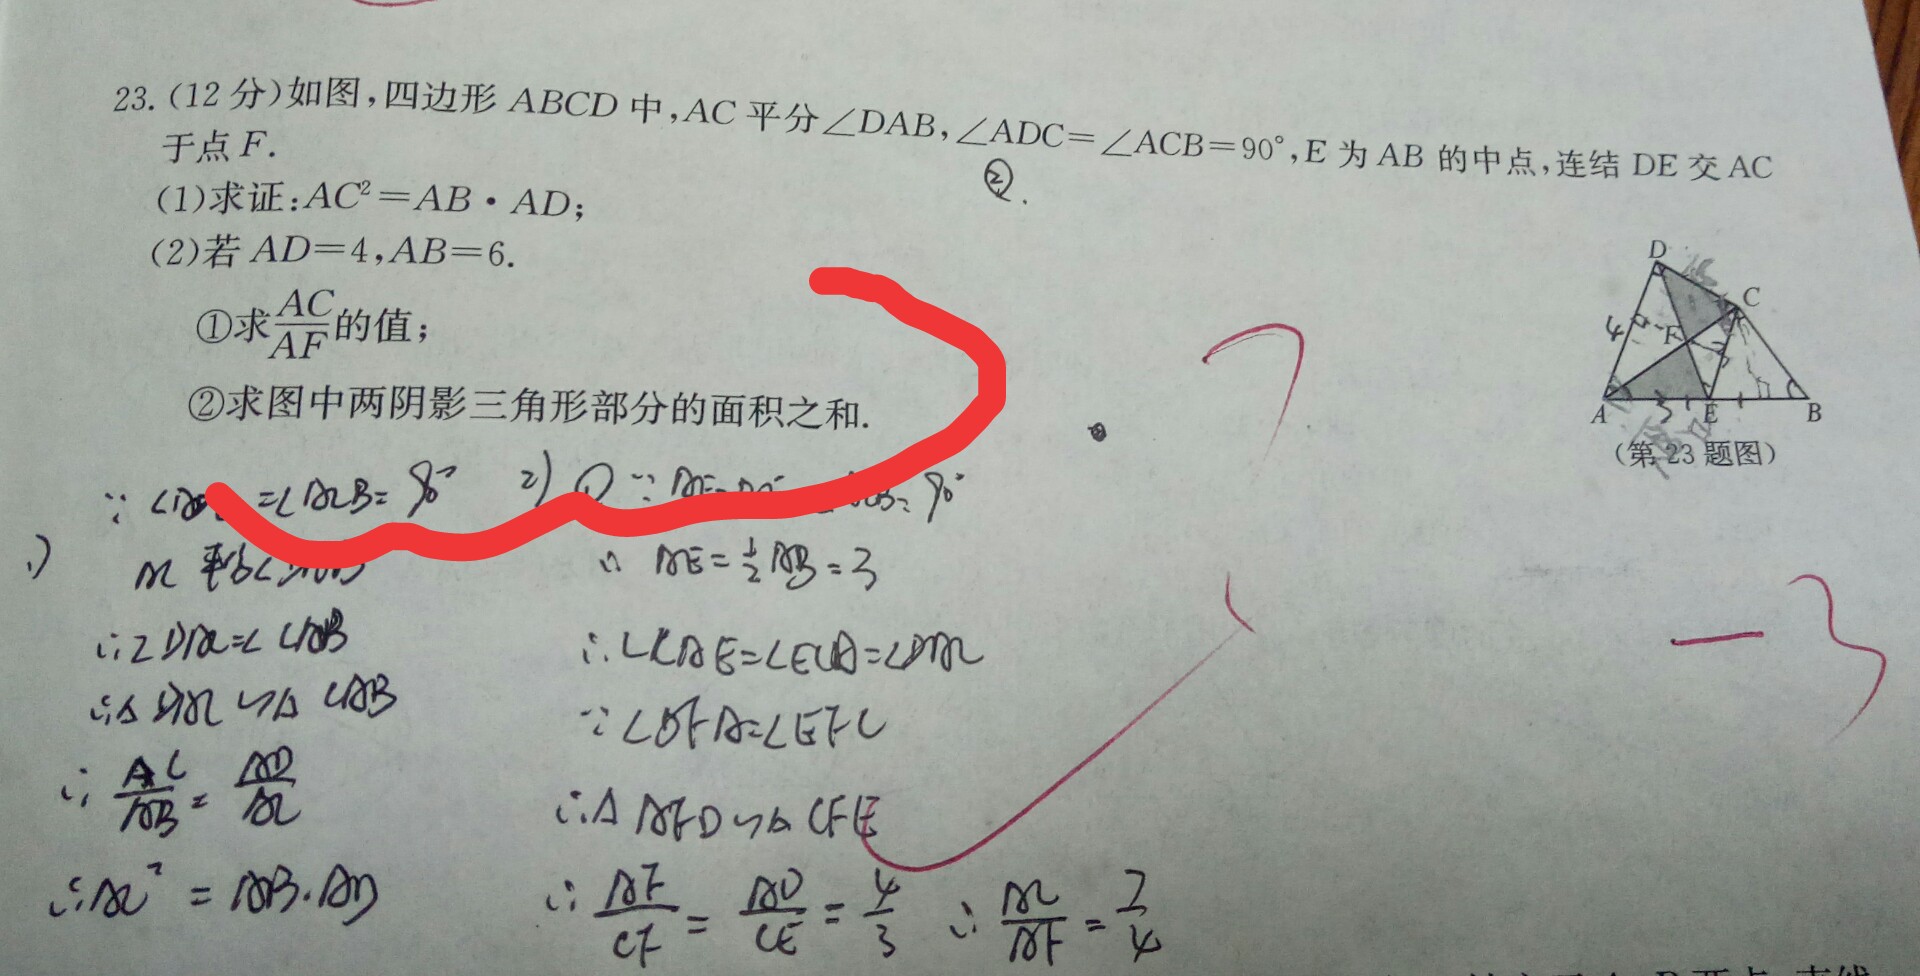 23.(12分)如图,四边形 ABCD 中,AC 平分∠DAB,∠ADC=∠ACB=90°,E 为 AB 的中点,连结 DE 交 AC
于点 F.
②.
(1)求证:AC²=AB·AD;
(2)若 AD=4,AB=6.
①求AC/AF的值;
②求图中两阴影三角形部分的面积之和.
D
C
4
F
3
A
3
E
B
(第 23 题图)
1)
∵ =∠ACB=90°
AC 平分∠
∴∠DAC=∠CAB
∴△DAC∽△CAB
∴AC/AB=AD/AC
∴AC²=AB·AD
2) ① ∵ =90°
∴ AE=1/2AB=3
∴∠CAE=∠ECA=∠DAC
∵∠DFA=∠EFC
∴△AFD∽△CFE
∴AF/CF=AD/CE=4/3 ∴AC/AF=7/4
-3